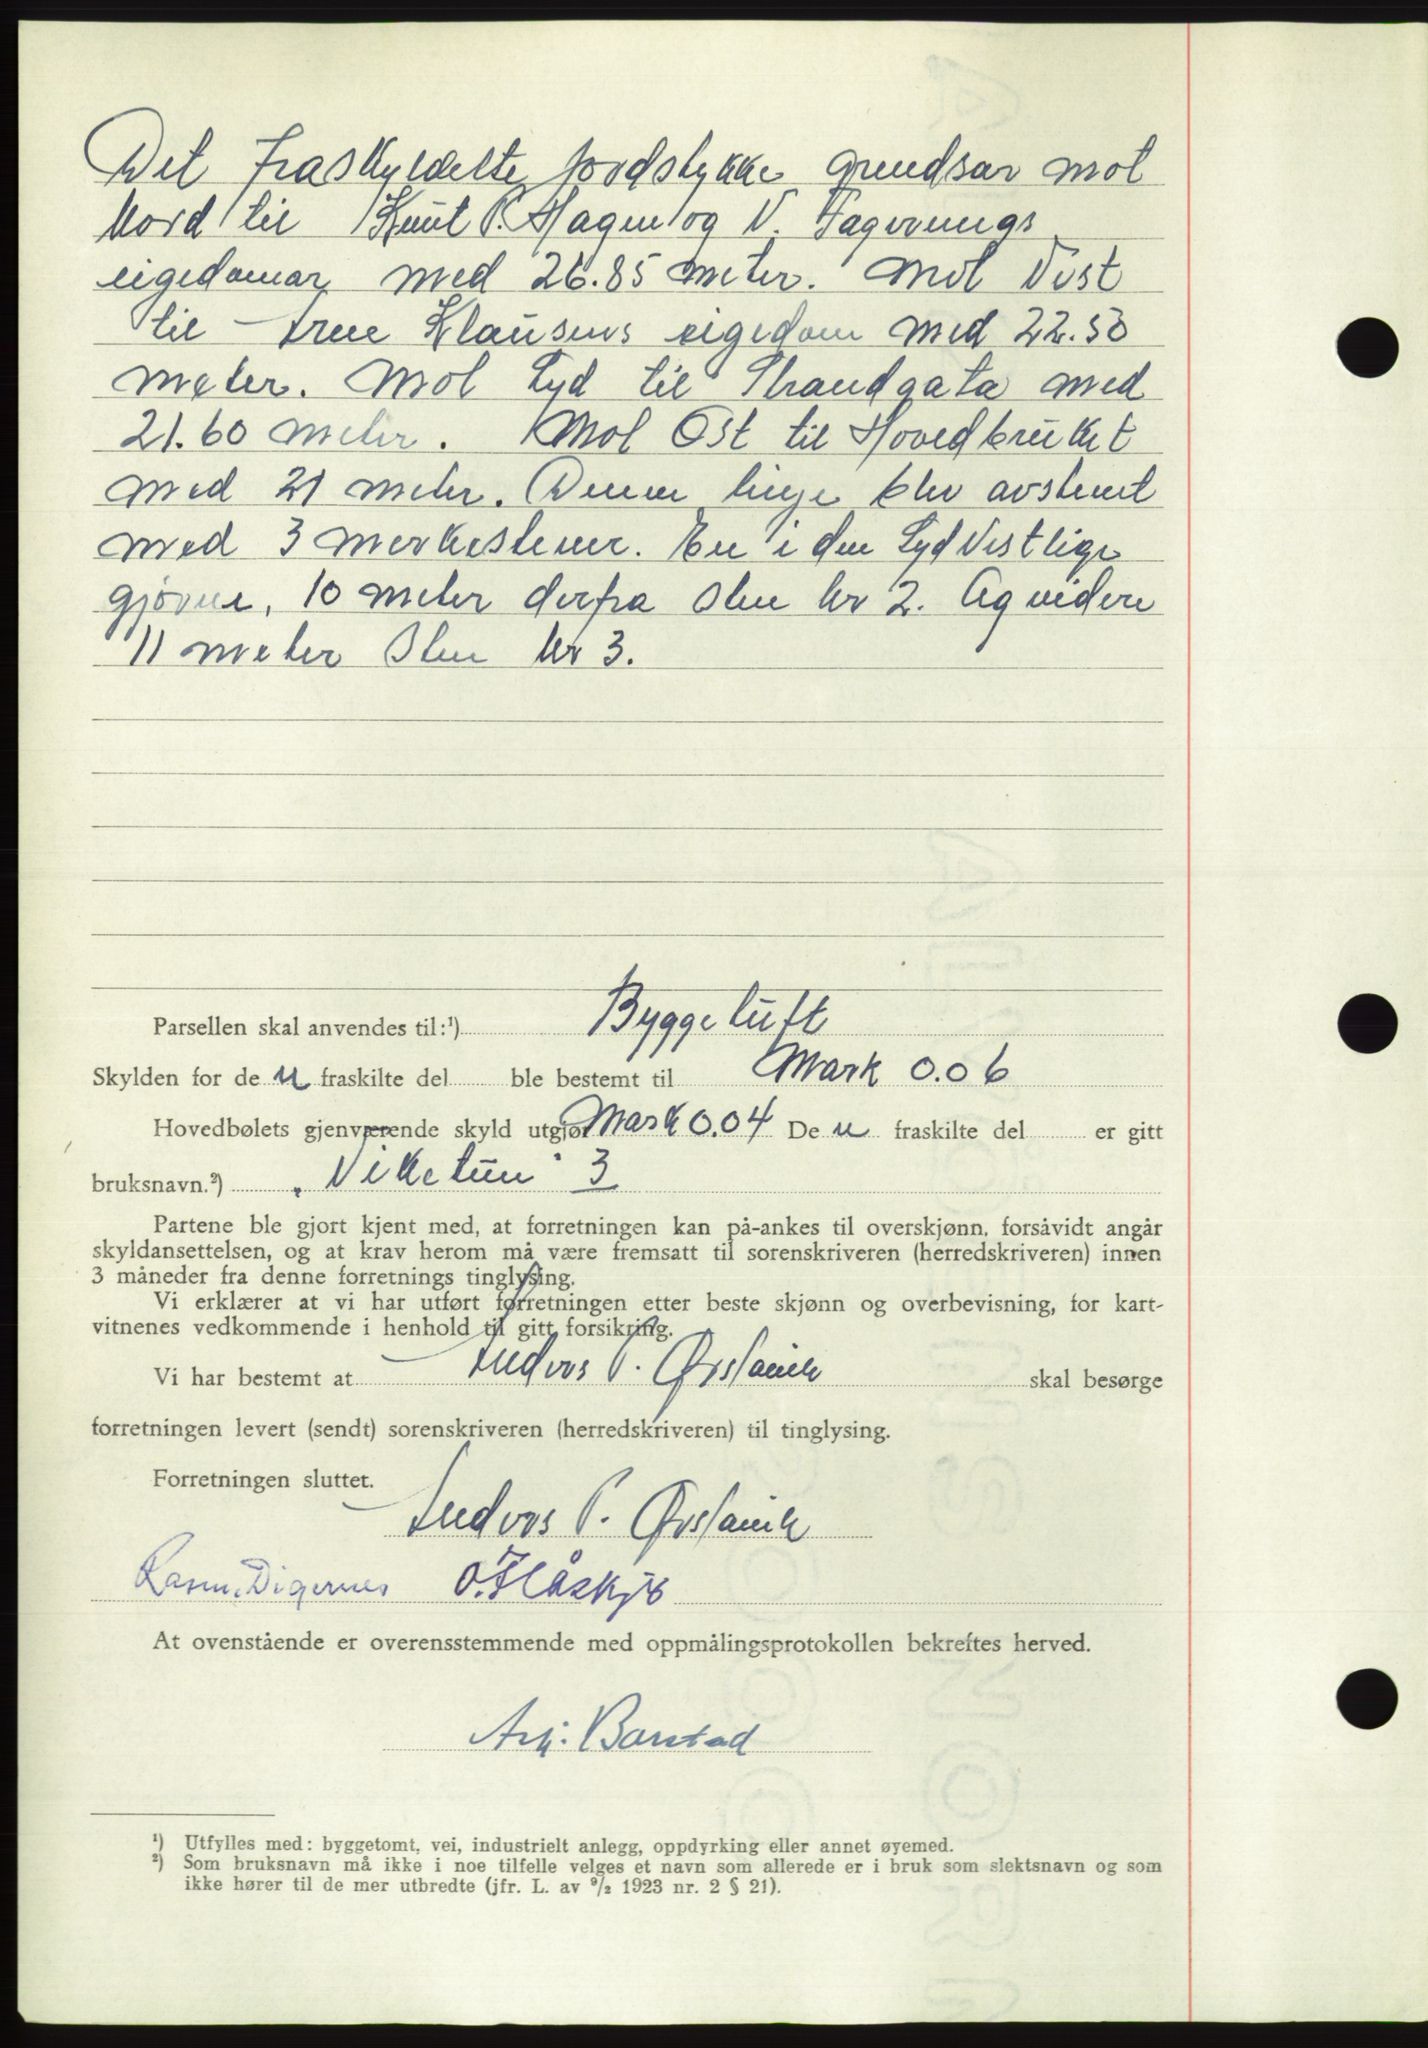 Det fraskyldelte jordstykke grendsar mot
Nord til Knut P. Hagen og N. Fagervungs
eigedomar med 26.85 meter. Mot Vest
til Arne Klausens eigedom med 22.50
meter. Mot Syd til Strandgata med
21.60 meter. Mot Ost til Hovedbruket
med 21 meter. Denne linje blev avstenet
med 3 merkestener. En i den SydVestlige
gjörne, 10 meter derfra Sten Nr 2. Og videre
11 meter Sten Nr 3.
Parsellen skal anvendes til:¹) Byggetuft
Skylden for de n fraskilte del ble bestemt til Mark 0.06
Hovedbølets gjenværende skyld utgjør Mark 0.04 De n fraskilte del er gitt
bruksnavn.²) „Viketun" 3
Partene ble gjort kjent med, at forretningen kan på-ankes til overskjønn, forsåvidt angår
skyldansettelsen, og at krav herom må være fremsatt til sorenskriveren (herredskriveren) innen
3 måneder fra denne forretnings tinglysing.
Vi erklærer at vi har utført forretningen etter beste skjønn og overbevisning, for kart-
vitnenes vedkommende i henhold til gitt forsikring.
Vi har bestemt at Andreas P. Ørstavik skal besørge
forretningen levert (sendt) sorenskriveren (herredskriveren) til tinglysing.
Forretningen sluttet.
Andreas P. Ørstavik
Rasm. Digernes O. Flåskjø
At ovenstående er overensstemmende med oppmålingsprotokollen bekreftes herved.
Barstad
¹) Utfylles med: byggetomt, vei, industrielt anlegg, oppdyrking eller annet øyemed.
²) Som bruksnavn må ikke i noe tilfelle velges et navn som allerede er i bruk som slektsnavn og som
ikke hører til de mer utbredte (jfr. L. av 9/2 1923 nr. 2 § 21).